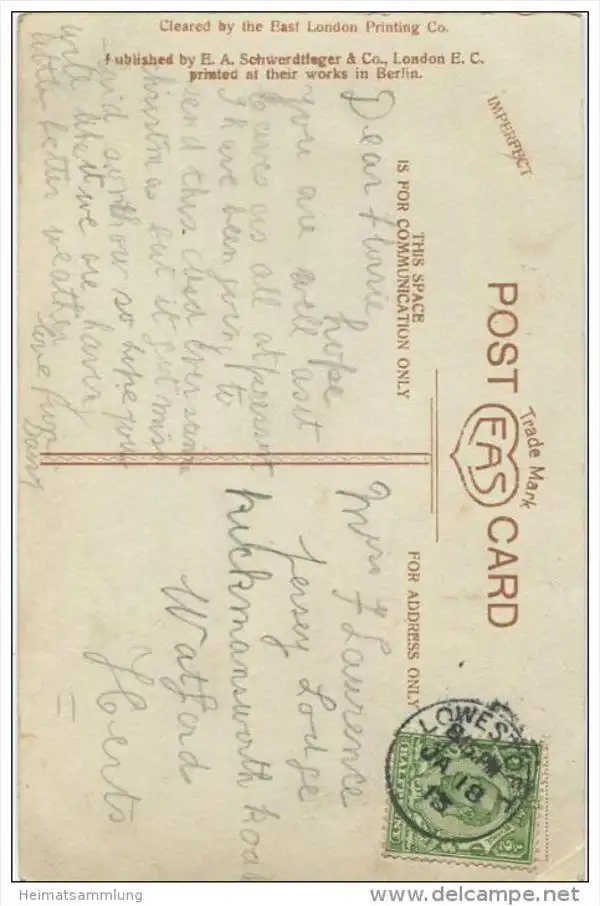 Cleared by the East London Printing Co.
Published by E. A. Schwerdtfeger & Co., London E. C.
printed at their works in Berlin.
IMPERFECT
POST CARD
Trade Mark
EAS
THIS SPACE
IS FOR COMMUNICATION ONLY
FOR ADDRESS ONLY
Dear Florrie
hope
you are well as it
leaves us all at present
I have been going to
send this card ever since
christmas but it got mis
so hope you
like what we are haven
better weather
love from
Daisy
Miss F Laurence
Jersey Lodge
Rickmansworth Road
Watford
Herts
LOWESTOFT
PM
JA 18
13
Heimatsammlung
www.delcampe.net